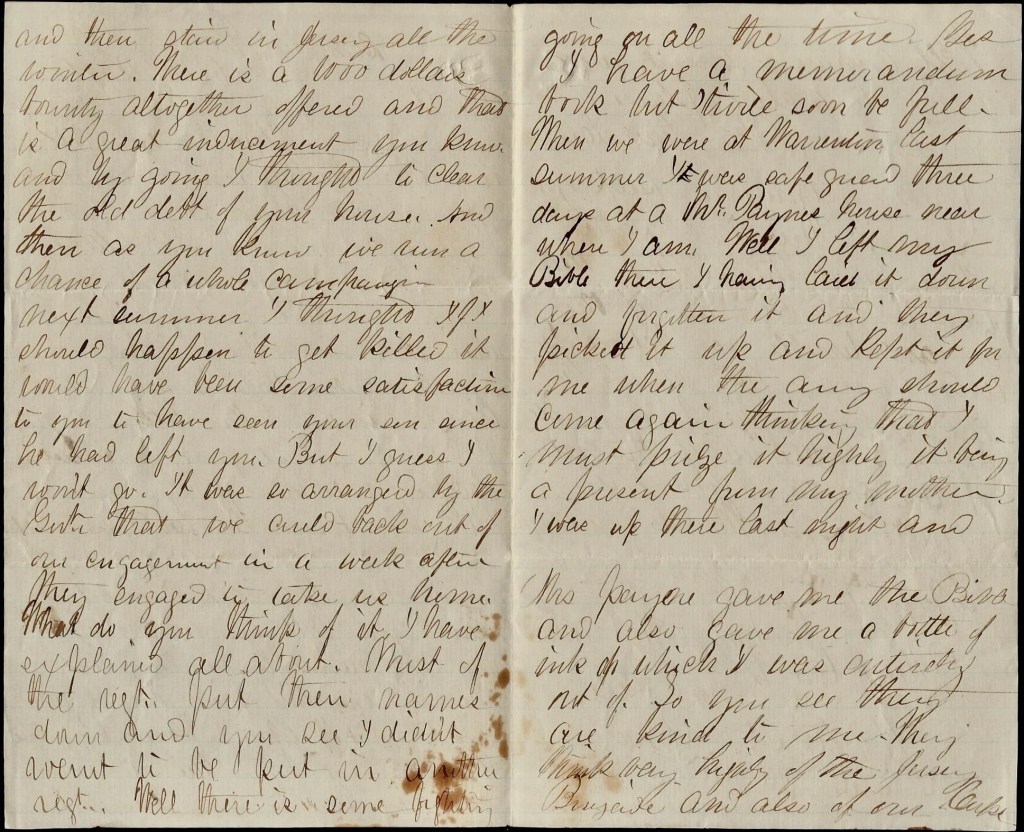 and then staid in Jersey all the
winter. There is a 1000 dollars
bounty altogether offered and that
is a great inducement you know
and by going I thought to clear
the old debt of your house. And
then as you know we run a
chance of a whole campaign
next summer I thought if I
should happen to get killed it
would have been some satisfaction
to you to have seen your son since
he had left you. But I guess I
won't go. It was so arranged by the
Govt. that we could back out of
our engagement in a week after
they engaged to take us home.
What do you think of it. I have
explained all about. Most of
the regt. put their names
down and you see I didn't
want to be put in another
regt. Well there is some fighting
going on all the time. Yes
I have a memorandum
book but twill soon be full.
When we were at Warrenton last
summer I was safe guard three
days at a Mr. Paynes house near
where I am. Well I left my
Bible there I having laid it down
and forgotten it and they
picked it up and kept it for
me when the army should
come again thinking that I
must prize it highly it being
a present from my mother.
I was up there last night and
Mrs Payne gave me the Bible
and also gave me a bottle of
ink of which I was entirely
out of. So you see they
are kind to me. They
think very highly of the Jersey
Brigade and also of our